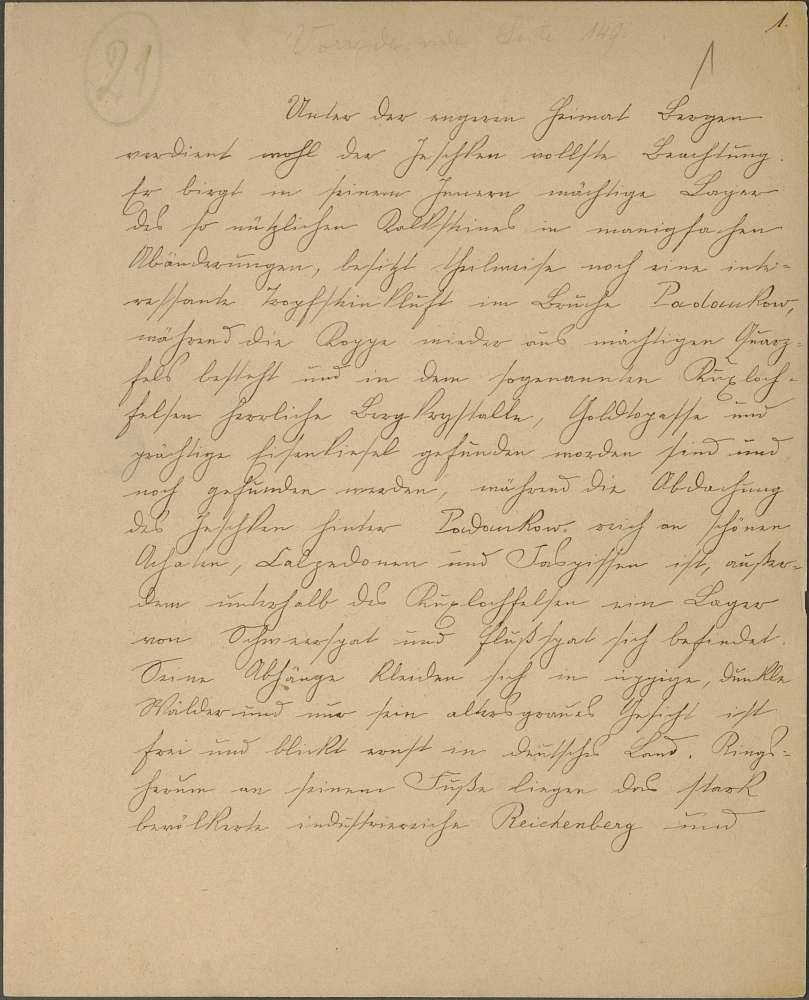 1.
21
1
Unter der engeren Heimat Bergen
verdient wohl der Jeschken vollste Beachtung.
Er birgt in seinem Innern mächtige Lager
des so nützlichen Kalksteines in manigfachen
Abänderungen, besitzt theilweise noch eine inte-
ressante Tropfsteinkluft im Bruche Padoukow,
während die Koppe wieder aus mächtigen Quarz-
fels besteht und in dem sogenannten Kuxloch-
felsen herrliche Bergkrystalle, Goldtopasse und
prächtige Eisenkiesel gefunden worden sind und
noch gefunden werden, während die Abdachung
des Jeschken hinter Padoukow reich an schönen
Achaten, Calzedonen und Jaspissen ist, außer-
dem unterhalb des Kuxlochfelsen ein Lager
von Schwerspat und Flußspat sich befindet.
Seine Abhänge kleiden sich in üppige, dunkle
Wälder und nur sein altersgraues Gesicht ist
frei und blickt ernst in deutsches Land. Rings-
herum an seinem Fuße liegen das stark
bevölkerte industriereiche Reichenberg und